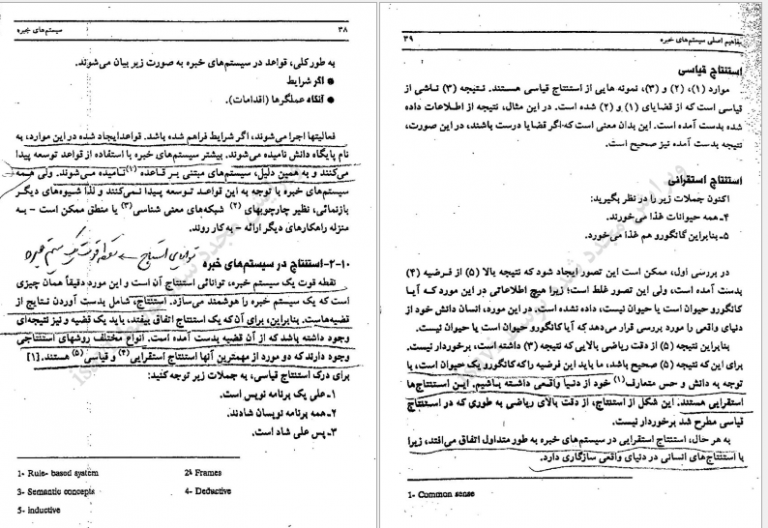 ۳۸ سیستم‌های خبره
به طور کلی، قواعد در سیستم‌های خبره به صورت زیر بیان می‌شوند.
● اگر شرایط
● آنگاه عملگرها (اقدامات).
فعالیتها اجرا می‌شوند، اگر شرایط فراهم شده باشد. قواعد ایجاد شده در این موارد، به
نام پایگاه دانش نامیده می‌شوند. بیشتر سیستم‌های خبره با استفاده از قواعد توسعه پیدا
می‌کنند و به همین دلیل، سیستم‌های مبتنی بر قاعده (۱) نامیده می‌شوند. ولی همه
سیستم‌های خبره با توجه به این قواعد توسعه پیدا نمی‌کنند و لذا شیوه‌های دیگر
بازنمائی، نظیر چارچوبهای (۲) شبکه‌های معنی شناسی (۳) یا منطق ممکن است - به
منزله راهکارهای دیگر ارائه - به کار روند.
توانایی استنتاج نقطه قوت یک سیستم خبره
۲-۱۰-استنتاج در سیستم‌های خبره
نقطه قوت یک سیستم خبره، توانائی استنتاج آن است و این مورد دقیقاً همان چیزی
است که یک سیستم خبره را هوشمند می‌سازد. استنتاج، شامل بدست آوردن نتایج از
قضیه‌هاست. بنابراین، برای آن که یک استنتاج اتفاق بیفتد، باید یک قضیه و نیز نتیجه‌ای
وجود داشته باشد که از آن قضیه بدست آمده است. انواع مختلف روشهای استنتاجی
وجود دارند که دو مورد از مهمترین آنها استنتاج استقرایی (۴) و قیاسی (۵) هستند. [۱]
برای درک استنتاج قیاسی، به جملات زیر توجه کنید:
۱-علی یک برنامه نویس است.
۲-همه برنامه نویسان شادند.
۳-پس علی شاد است.
1- Rule- based system 2- Frames
3- Semantic concepts 4- Deductive
5- inductive
مفاهیم اصلی سیستم‌های خبره ۳۹
استنتاج قیاسی
موارد (۱)، (۲) و (۳)، نمونه هایی از استنتاج قیاسی هستند. نتیجه (۳) ناشی از
قیاسی است که از قضایای (۱) و (۲) شده است. در این مثال، نتیجه از اطلاعات داده
شده بدست آمده است. این بدان معنی است که اگر قضایا درست باشند، در این صورت،
نتیجه بدست آمده نیز صحیح است.
استنتاج استقرائی
اکنون جملات زیر را در نظر بگیرید:
۴-همه حیوانات غذا می‌خورند.
۵-بنابراین کانگورو هم غذا می‌خورد.
در بررسی اول، ممکن است این تصور ایجاد شود که نتیجه بالا (۵) از فرضیه (۴)
بدست آمده است، ولی این تصور غلط است؛ زیرا هیچ اطلاعاتی در این مورد که آیا
کانگورو حیوان است یا حیوان نیست، داده نشده است. در این مورد، انسان دانش خود از
دنیای واقعی را مورد بررسی قرار می‌دهد که آیا کانگورو حیوان است یا حیوان نیست.
بنابراین نتیجه (۵) از دقت ریاضی بالایی که نتیجه (۳) داشته است، برخوردار نیست.
برای این که نتیجه (۵) صحیح باشد، ما باید این فرضیه را که کانگورو یک حیوان است، با
توجه به دانش و حس متعارف (۱) خود از دنیا واقعی داشته باشیم. این استنتاج‌ها
استقرایی هستند. این شکل از استنتاج، از دقت بالای ریاضی به طوری که در استنتاج
قیاسی مطرح شد برخوردار نیست.
به هر حال، استنتاج استقرایی در سیستم‌های خبره به طور متداول اتفاق می‌افتد، زیرا
با استنتاج‌های انسانی در دنیای واقعی سازگاری دارد.
1- Common sense